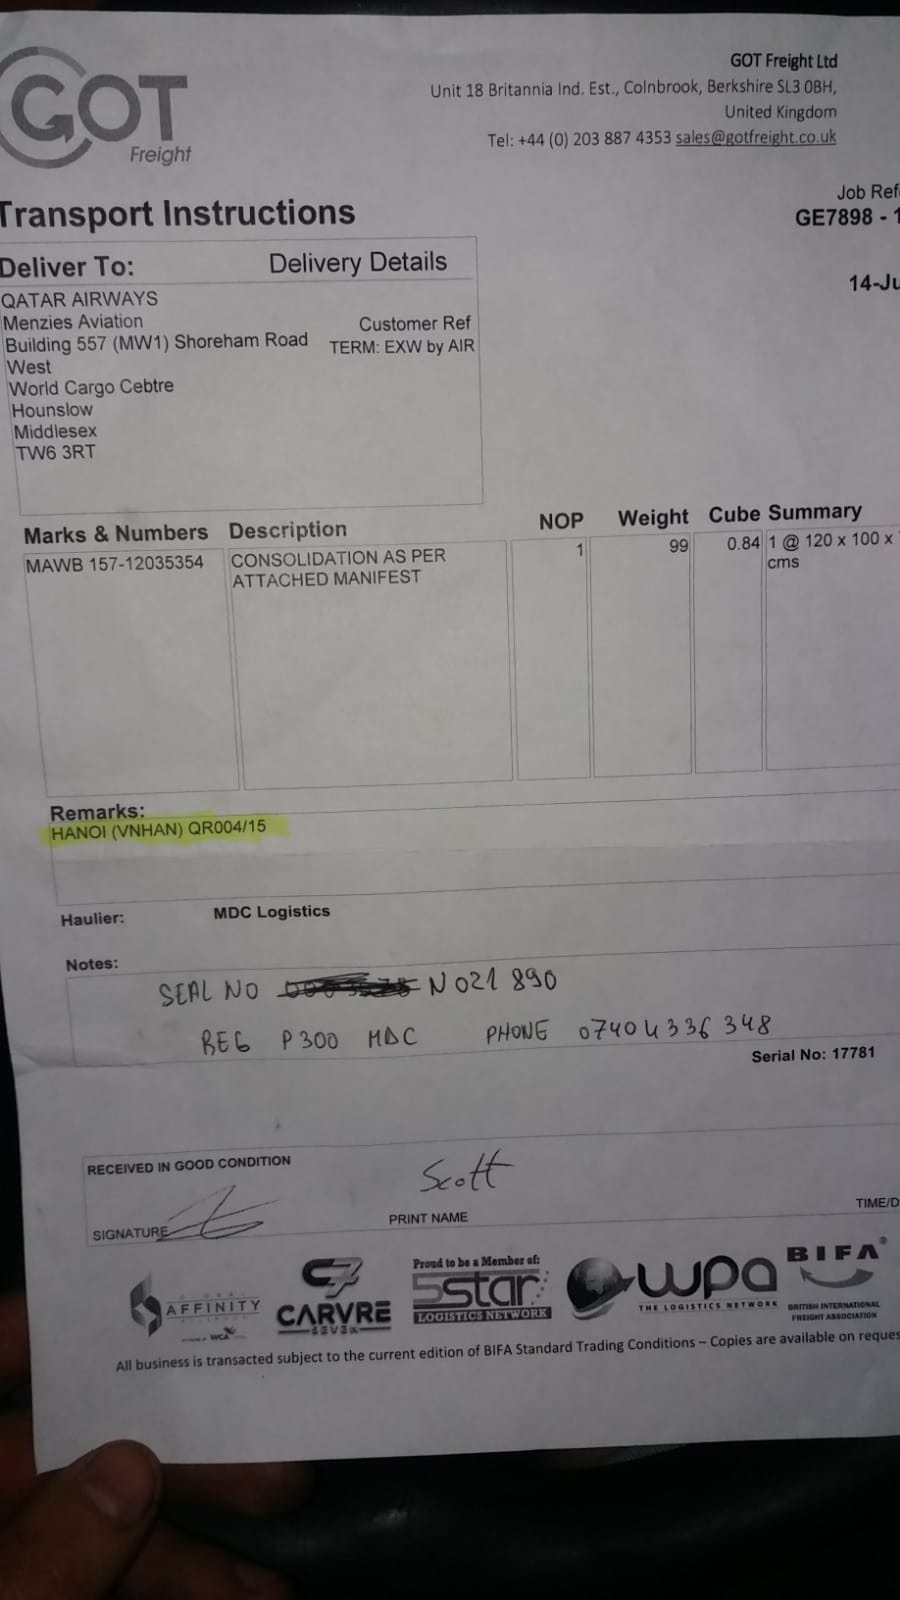 GOT
Freight
GOT Freight Ltd
Unit 18 Britannia Ind. Est., Colnbrook, Berkshire SL3 0BH,
United Kingdom
Tel: +44 (0) 203 887 4353 sales@gotfreight.co.uk
Transport Instructions
Job Ref
GE7898 - 1
14-Ju
Deliver To: Delivery Details
QATAR AIRWAYS
Menzies Aviation Customer Ref
Building 557 (MW1) Shoreham Road TERM: EXW by AIR
West
World Cargo Cebtre
Hounslow
Middlesex
TW6 3RT
Marks & Numbers Description NOP Weight Cube Summary
MAWB 157-12035354 CONSOLIDATION AS PER 1 99 0.84 1 @ 120 x 100 x
ATTACHED MANIFEST cms
Remarks:
HANOI (VNHAN) QR004/15
Haulier: MDC Logistics
Notes:
SEAL NO N021 890
REG P300 MDC PHONE 07404336348
Serial No: 17781
RECEIVED IN GOOD CONDITION
Scott
SIGNATURE PRINT NAME TIME/D
GLOBAL AFFINITY ALLIANCE
WCA
CARVRE
SEVEN
Proud to be a Member of:
5star
LOGISTICS NETWORK
wpa
THE LOGISTICS NETWORK
BIFA
BRITISH INTERNATIONAL
FREIGHT ASSOCIATION
All business is transacted subject to the current edition of BIFA Standard Trading Conditions – Copies are available on reques